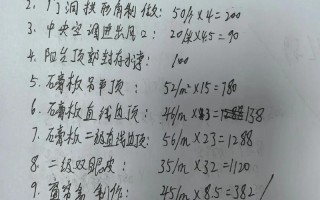 2. 门洞拱形角制做: 50/个×4=200
3. 中央空调进出风口: 20/个×4.5=90
4. 阳台顶部封存水漆: 100
5. 石膏板吊平顶: 52/m²×15=780
6. 石膏板直线边顶: 46/m×3=138
7. 石膏板二级直线边顶: 56/m×23=1288
8. 二级双眼皮: 35/m×32=1120
9. 窗帘盒制作: 45/m×8.5=382